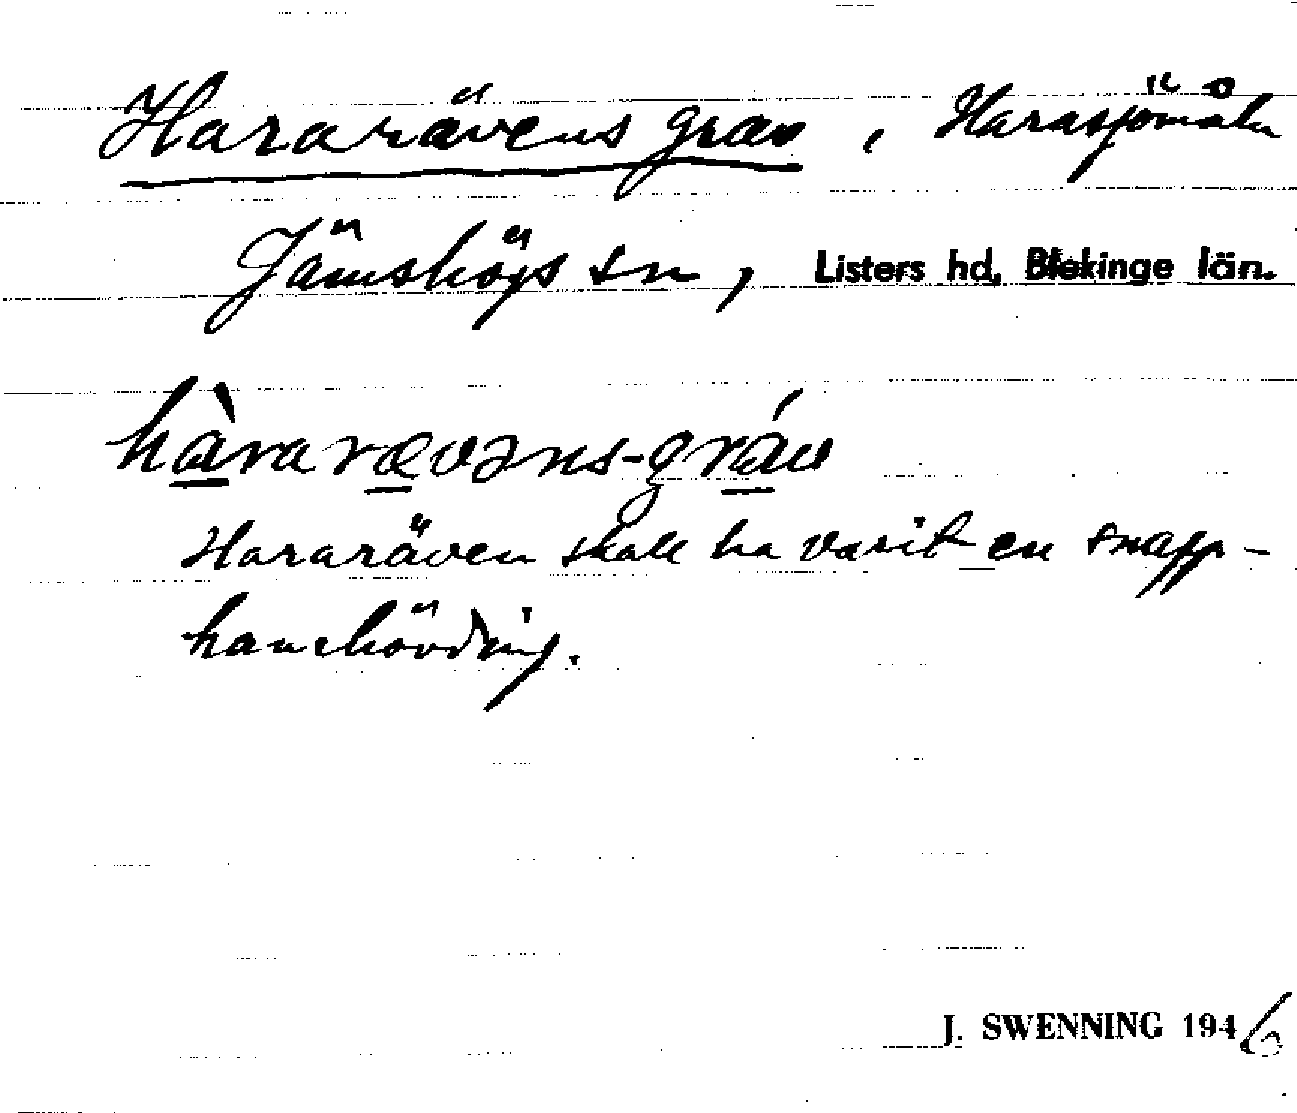 Hararävens grav, Harasjömåla
Jämshögs sn, Listers hd, Blekinge län.
hàrarævəns-gráv
Hararäven skall ha varit en snapp-
hanehövding.
J. SWENNING 1946